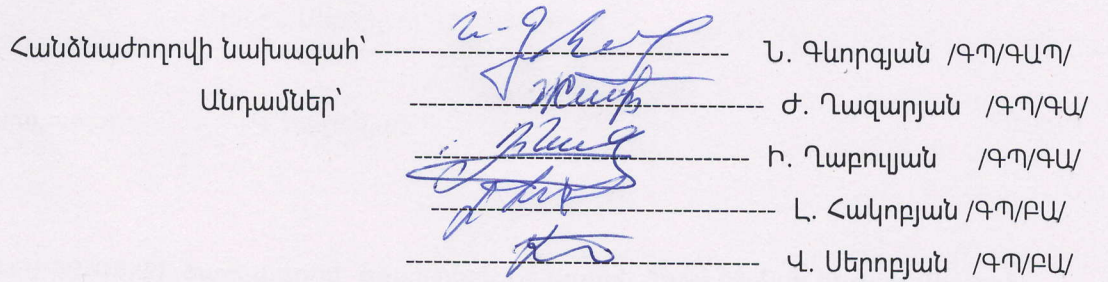 Հանձնաժողովի նախագահ՝ ---------------------------------- Ն. Գևորգյան /ԳՊ/ԳԱՊ/
Անդամներ՝ ---------------------------------- Ժ. Ղազարյան /ԳՊ/ԳԱ/
---------------------------------- Ի. Ղաբուլյան /ԳՊ/ԳԱ/
---------------------------------- Լ. Հակոբյան /ԳՊ/ԲԱ/
---------------------------------- Վ. Սերոբյան /ԳՊ/ԲԱ/